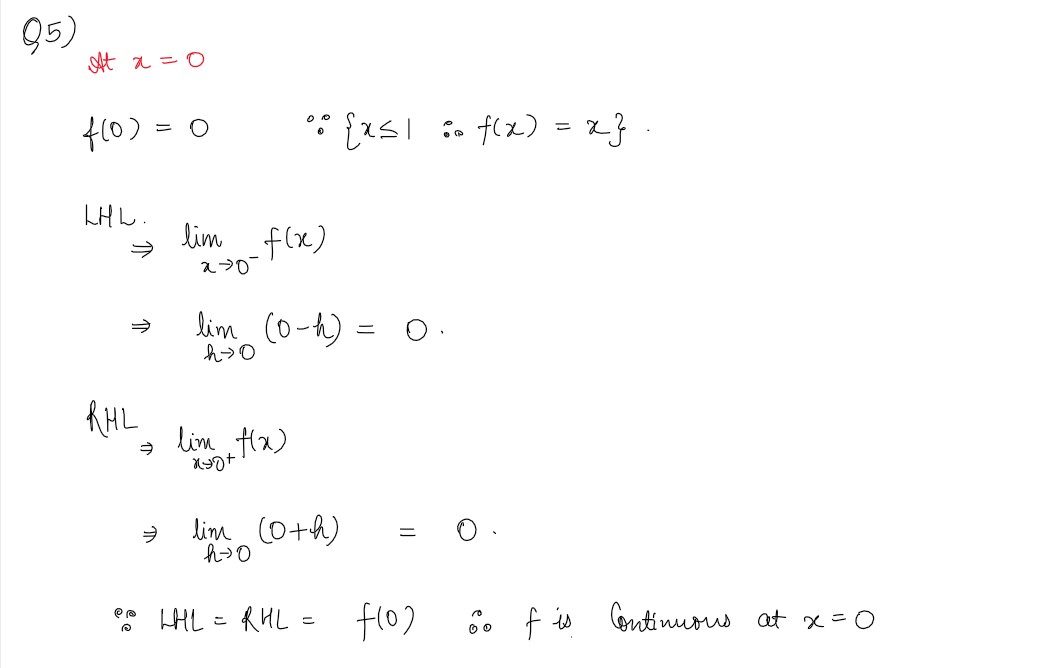 Q5)
At x = 0
f(0) = 0 ∵ {x ≤ 1 ∴ f(x) = x} .
LHL.
⇒ lim x→0⁻ f(x)
⇒ lim h→0 (0-h) = 0 .
RHL
⇒ lim x→0⁺ f(x)
⇒ lim h→0 (0+h) = 0 .
∵ LHL = RHL = f(0) ∴ f is Continuous at x = 0